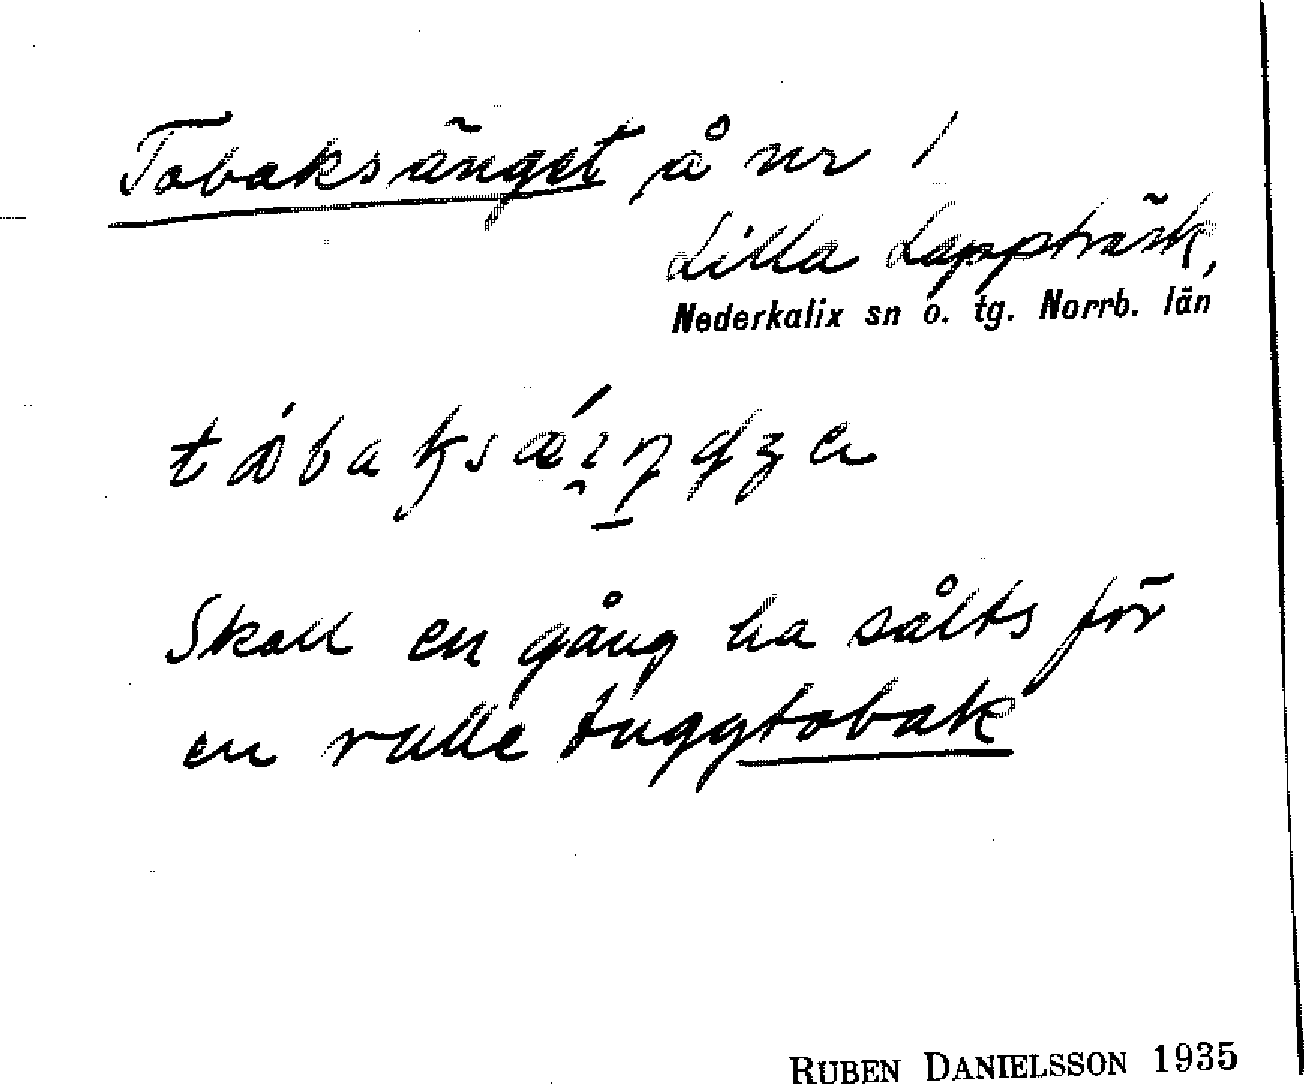 Tobaksänget å nr 1
Lilla Lappträsk,
Nederkalix sn o. tg. Norrb. län
Skall en gång ha sålts för
en rulle tuggtobak
RUBEN DANIELSSON 1935